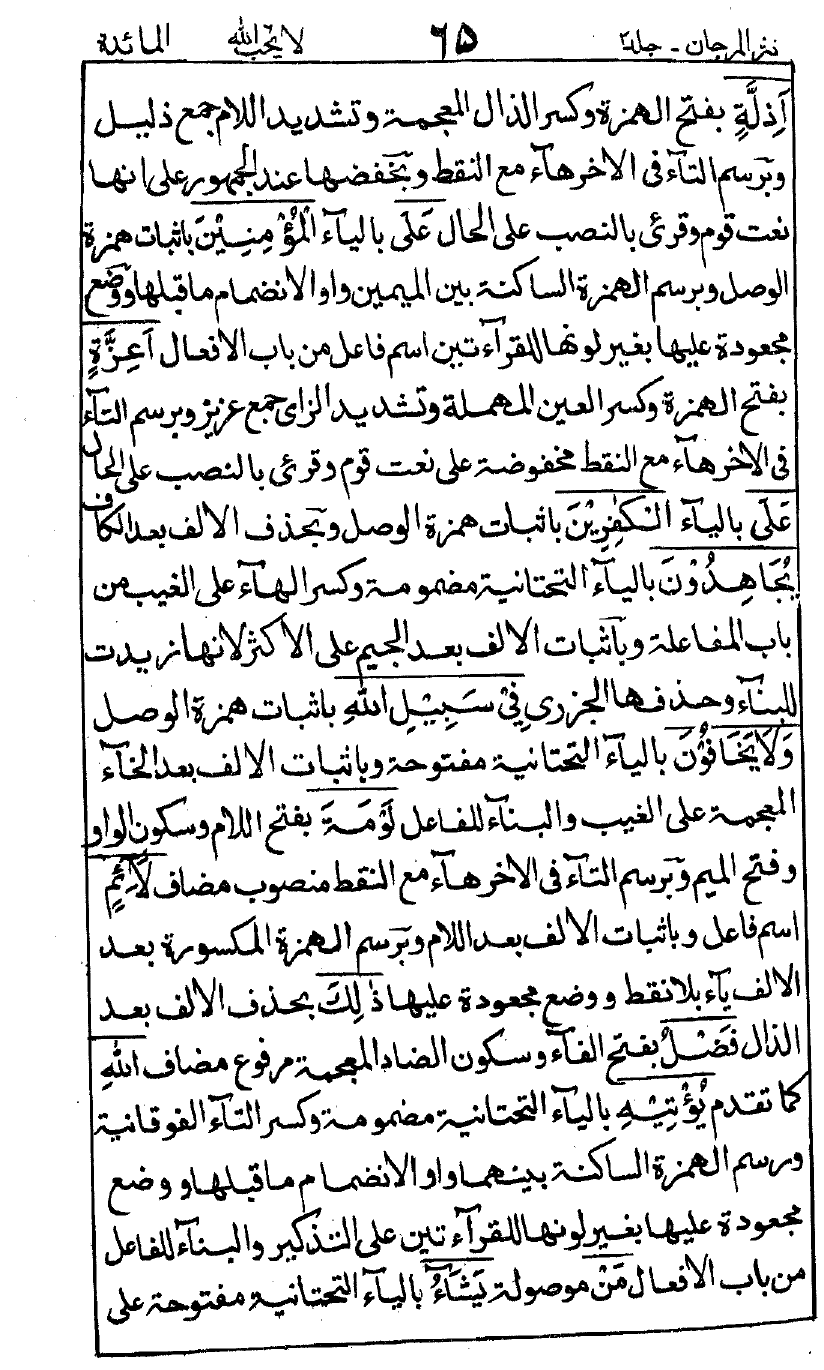 نثر المرجان - جلد٢ ٦٥ لا يحب الله المائدة
اَذِلَّةٍ بفتح الهمزة وكسر الذال المعجمة وتشديد اللام جمع ذليل
وبرسم التآء فى الاخر هآء مع النقط وبخفضها عند الجمهور على انها
نعت قوم وقرئ بالنصب على الحال عَلَى باليآء الْمُؤْمِنِيْنَ باثبات همزة
الوصل وبرسم الهمزة الساكنة بين الميمين واوا لانضمام ما قبلها ووضع
مجعودة عليها بغير لونها للقرآءتين اسم فاعل من باب الافعال اَعِزَّةٍ
بفتح الهمزة وكسر العين المهملة وتشديد الزاى جمع عزيز وبرسم التآء
فى الاخر هآء مع النقط مخفوضة على نعت قوم وقرئ بالنصب على الحال
عَلَى باليآء الْكٰفِرِيْنَ باثبات همزة الوصل وبحذف الالف بعد الكاف
يُجَاهِدُوْنَ باليآء التحتانية مضمومة وكسر الهآء على الغيب من
باب المفاعلة وباثبات الالف بعد الجيم على الاكثر لانها زيدت
للبنآء وحذفها الجزرى فِيْ سَبِيْلِ اللهِ باثبات همزة الوصل
وَلَا يَخَافُوْنَ باليآء التحتانية مفتوحة وباثبات الالف بعد الخآء
المعجمة على الغيب والبنآء للفاعل لَوْمَةَ بفتح اللام وسكون الواو
وفتح الميم وبرسم التآء فى الاخر هآء مع النقط منصوب مضاف لَآئِمٍ
اسم فاعل وباثبات الالف بعد اللام وبرسم الهمزة المكسورة بعد
الالف يآء بلا نقط ووضع مجعودة عليها ذٰلِكَ بحذف الالف بعد
الذال فَضْلُ بفتح الفآء وسكون الضاد المعجمة مرفوع مضاف اللهِ
كما تقدم يُؤْتِيْهِ باليآء التحتانية مضمومة وكسر التآء الفوقانية
ورسم الهمزة الساكنة بينهما واوا لانضمام ما قبلها ووضع
مجعودة عليها بغير لونها للقرآءتين على التذكير والبنآء للفاعل
من باب الافعال مَنْ موصولة يَشَآءُ باليآء التحتانية مفتوحة على